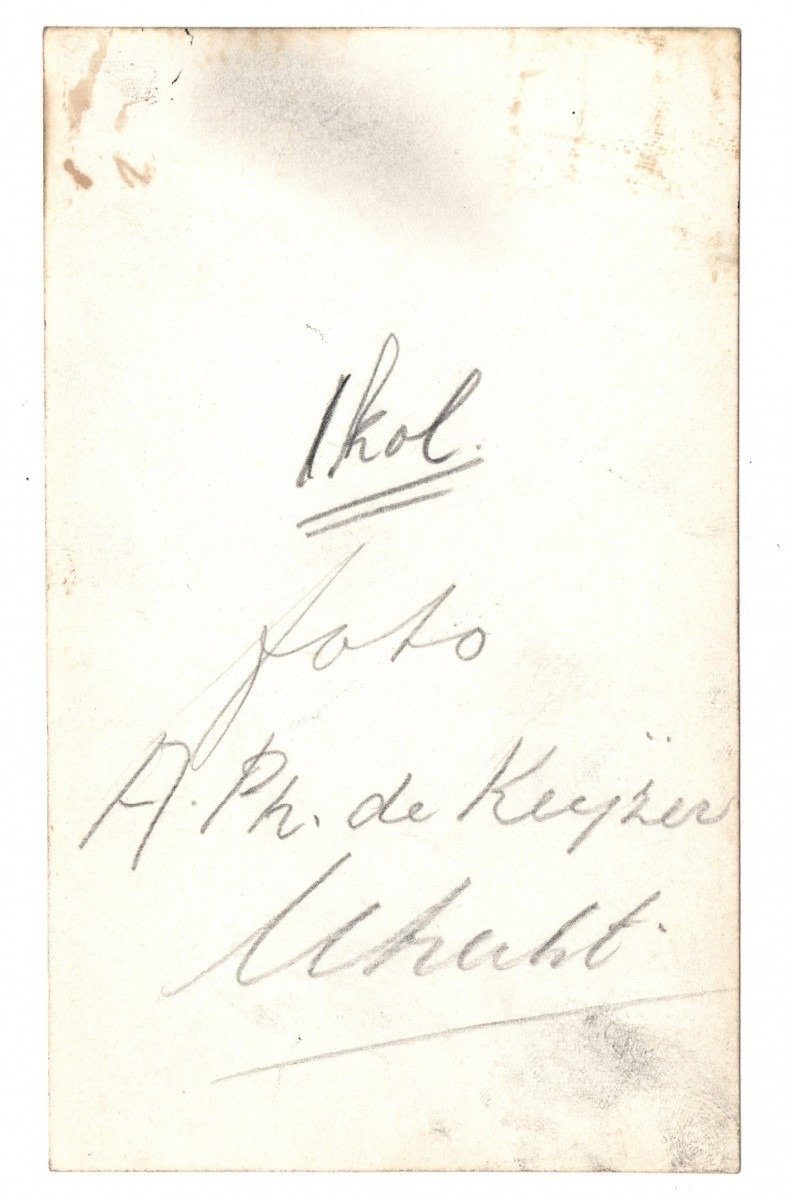 1 kol.
foto
A. Ph. de Keyzer
Utrecht.